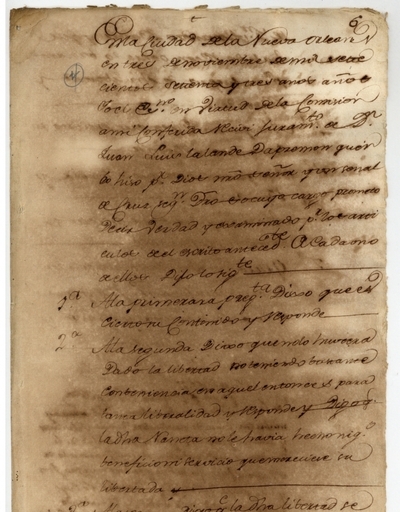 6
En la Ciudad de la Nueva Orleans
en tres de noviembre de mil sete
cientos setenta y tres años
en virtud de la Comision
a mi conferida Recivi Juramto de Dn
Juan Luis lalande Dapremon quien
lo hizo pr Dios nro señor y señal
de Cruz segn dro so cuyo cargo prometio
decir verdad y examinado pr los arti
culos del escrito antecedte A cada uno
de ellos Dijo lo sigte
1ª A la primera pregta Dixo que es
cierto su Contenido y Responde
2ª A la segunda Dixo que no huviera
Dado la libertad no teniendo bastante
combeniencia en aquel entonces para
tanta libealidad y Responde y Dijo q
la dha Naneta no le havia hecho nigo
beneficio ni servicio que mereciese su
libertad
la dha libertad se